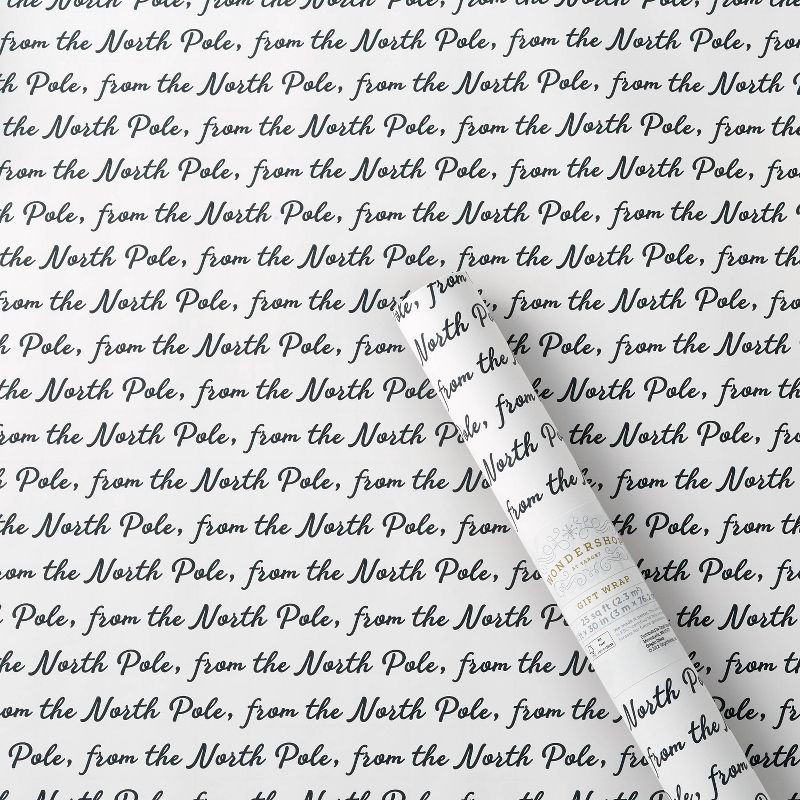 the North Pole, from the North Pole, from the North Pole, from
from the North Pole, from the North Pole, from the North Pole, from
Pole, from the North Pole, from the North Pole, from the North
the North Pole, from the North Pole, from the North Pole, from the
from the North Pole, from the North Pole, from the North Pole,
Pole, from the North Pole, from the North Pole, from the North
the North Pole, from the North Pole, from the North Pole, from the
from the North Pole, from the North Pole, from the North Pole,
Pole, from the North Pole, from the North Pole, from the North
the North Pole, from the North Pole, from the North Pole, from the
from the North Pole, from the North Pole, from the North Pole,
Pole, from the North Pole, from the North
the North Pole, from the North Pole, from the North Pole, from the
from the North Pole, from the North Pole, from the North Pole,
Pole, from the North Pole, from the North Pole, the North
the North Pole, from the North Pole, from the North Pole, from the
from the North Pole, from the North Pole, from the Pole,
Pole, from the North Pole, from the North Pole, from North
Pole, from
North
from the
Pole, from
North
from the
WONDERSHOP
BY TARGET
GIFT WRAP
25 sq ft (2.3 m²)
North
from the
from